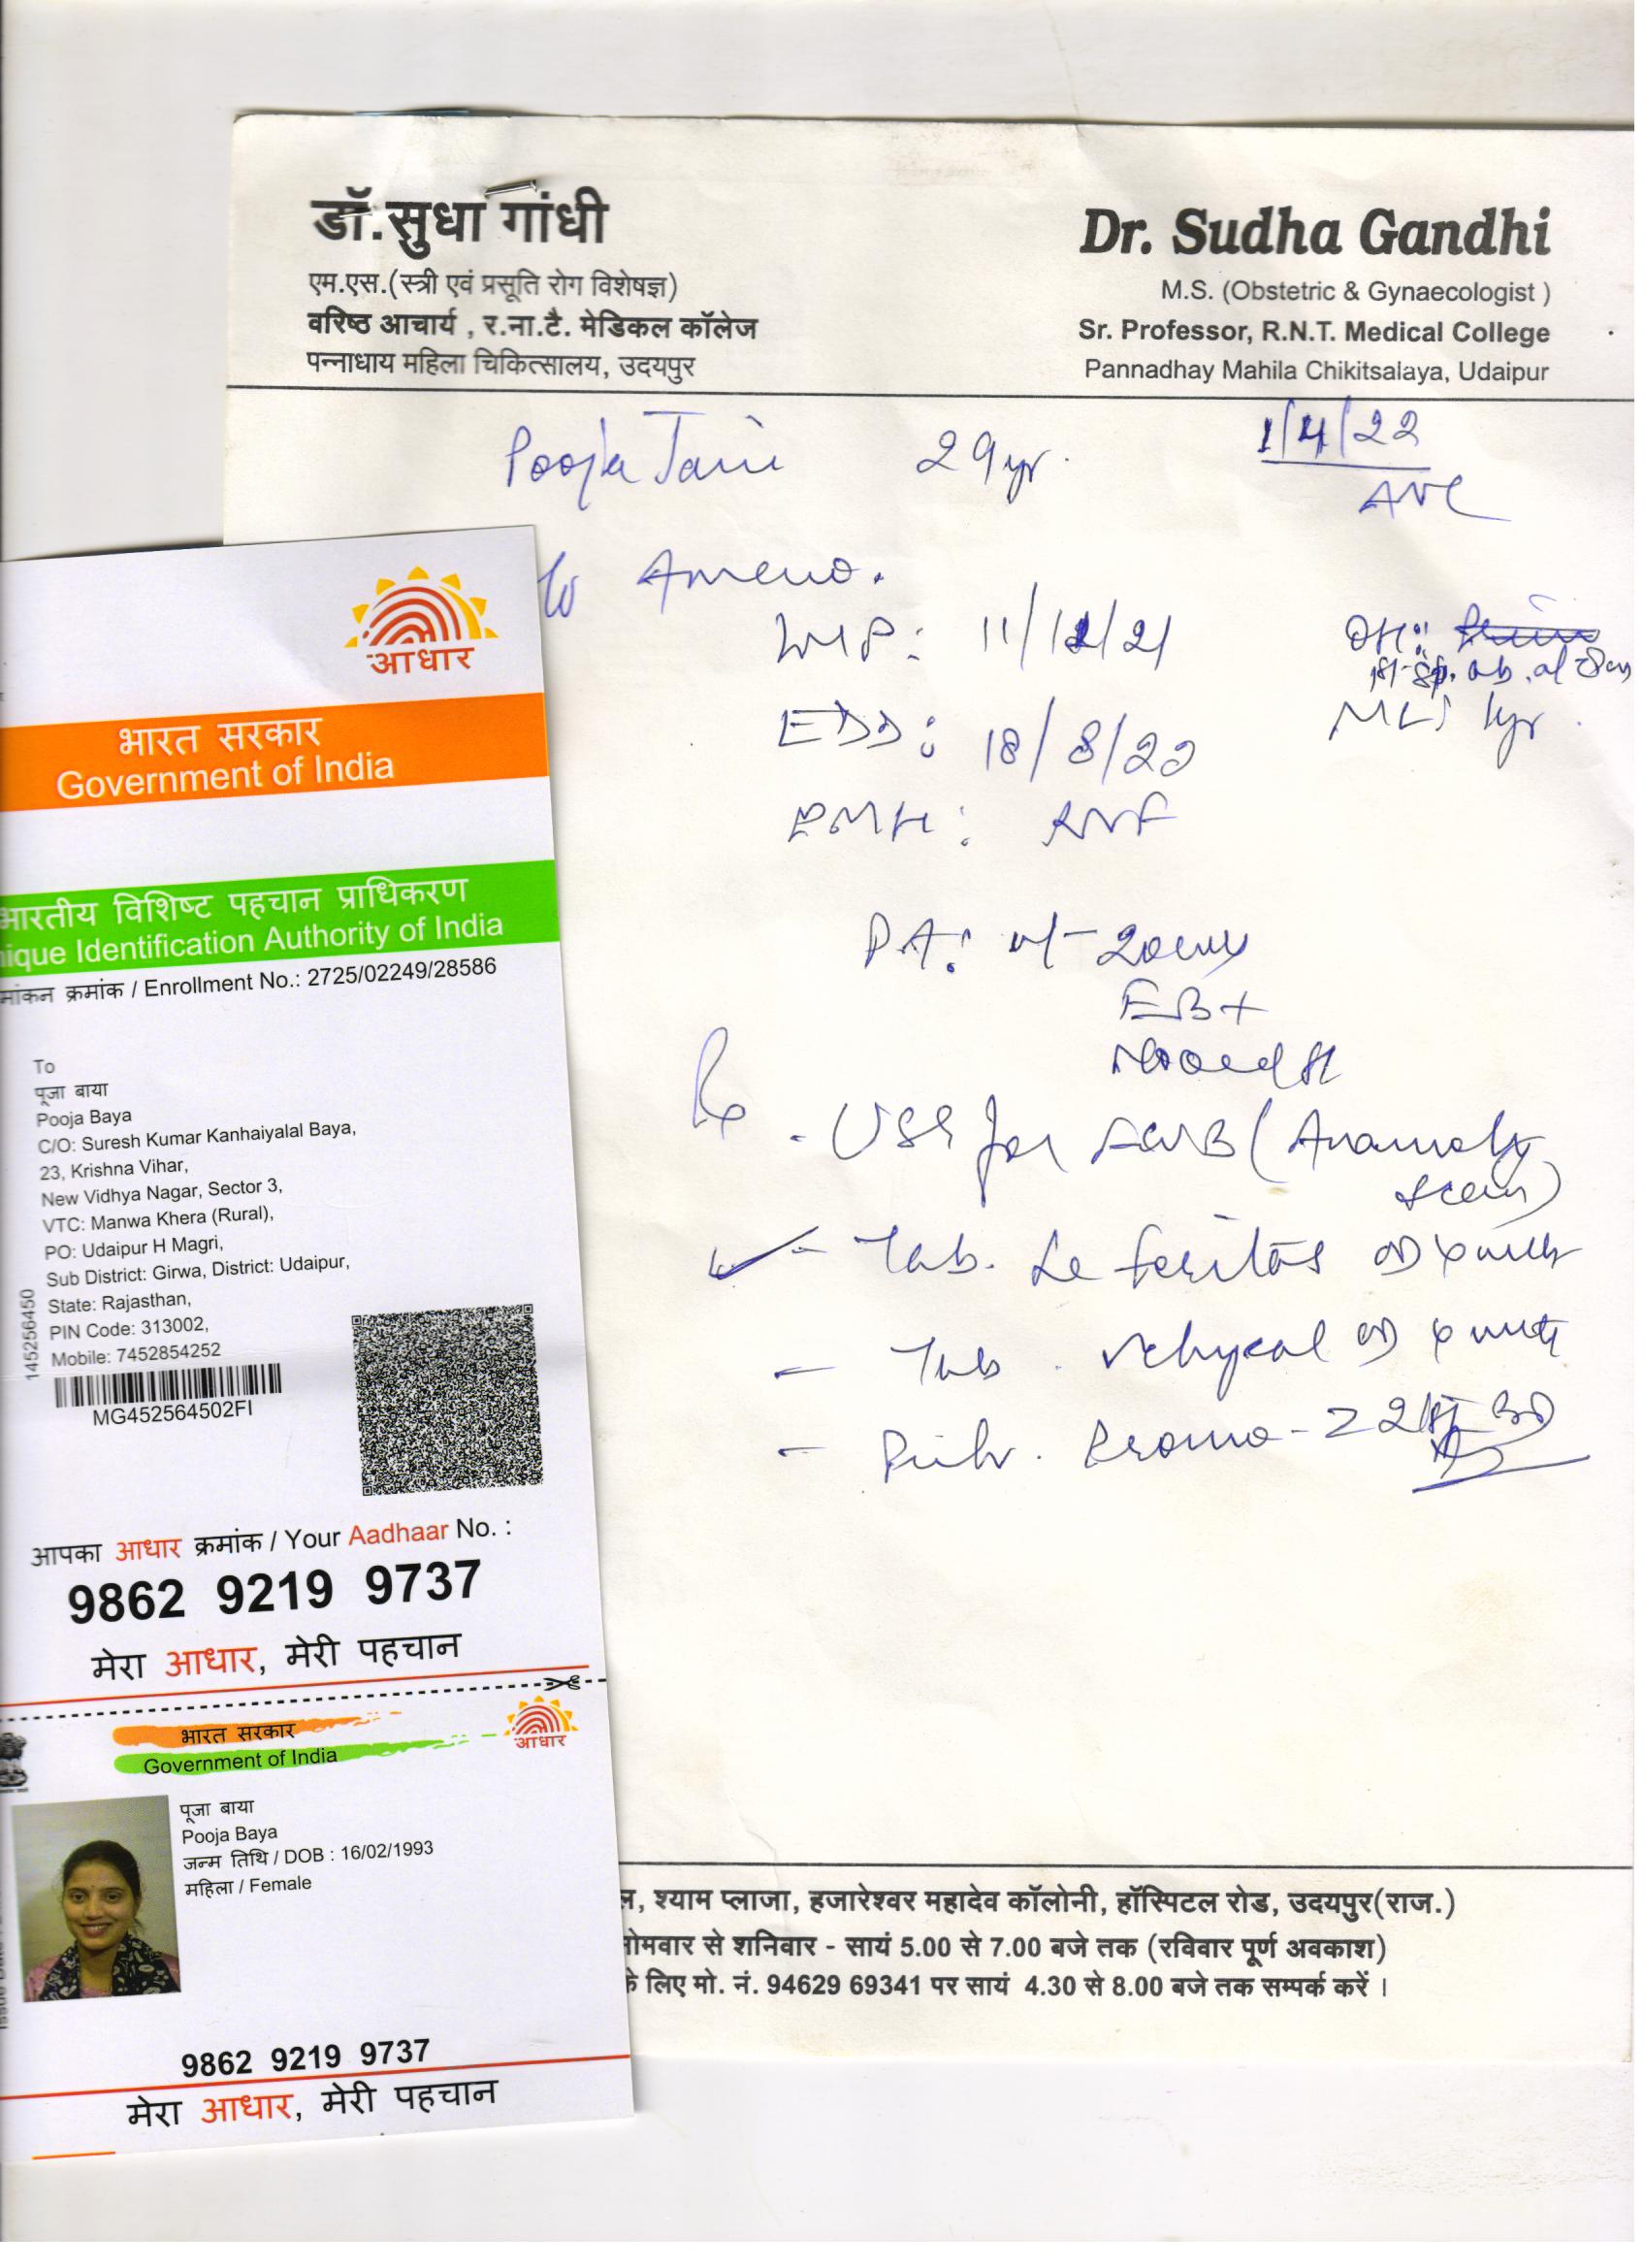 डॉ.सुधा गांधी
एम.एस.(स्त्री एवं प्रसूति रोग विशेषज्ञ)
वरिष्ठ आचार्य , र.ना.टै. मेडिकल कॉलेज
पन्नाधाय महिला चिकित्सालय, उदयपुर
Dr. Sudha Gandhi
M.S. (Obstetric & Gynaecologist )
Sr. Professor, R.N.T. Medical College
Pannadhay Mahila Chikitsalaya, Udaipur
Pooja Jain 29yr. 1/4/22
ANC
Ameno.
LMP: 11/11/21
OH:
ab. at
EDD: 18/8/22
ML: 1yr.
PMH:
PA: ut-20
FB+
Rx
- USG for FWB (Anamoly
scan)
- Tab. OD x
- Tab. OD x
- Promo-
आधार
भारत सरकार
Government of India
भारतीय विशिष्ट पहचान प्राधिकरण
nique Identification Authority of India
मांकन क्रमांक / Enrollment No.: 2725/02249/28586
To
पूजा बाया
Pooja Baya
C/O: Suresh Kumar Kanhaiyalal Baya,
23, Krishna Vihar,
New Vidhya Nagar, Sector 3,
VTC: Manwa Khera (Rural),
PO: Udaipur H Magri,
Sub District: Girwa, District: Udaipur,
State: Rajasthan,
PIN Code: 313002,
Mobile: 7452854252
145256450
MG452564502FI
आपका आधार क्रमांक / Your Aadhaar No. :
9862 9219 9737
मेरा आधार, मेरी पहचान
भारत सरकार
Government of India
आधार
पूजा बाया
Pooja Baya
जन्म तिथि / DOB : 16/02/1993
महिला / Female
9862 9219 9737
मेरा आधार, मेरी पहचान
ल, श्याम प्लाजा, हजारेश्वर महादेव कॉलोनी, हॉस्पिटल रोड, उदयपुर(राज.)
सोमवार से शनिवार - सायं 5.00 से 7.00 बजे तक (रविवार पूर्ण अवकाश)
के लिए मो. नं. 94629 69341 पर सायं 4.30 से 8.00 बजे तक सम्पर्क करें ।